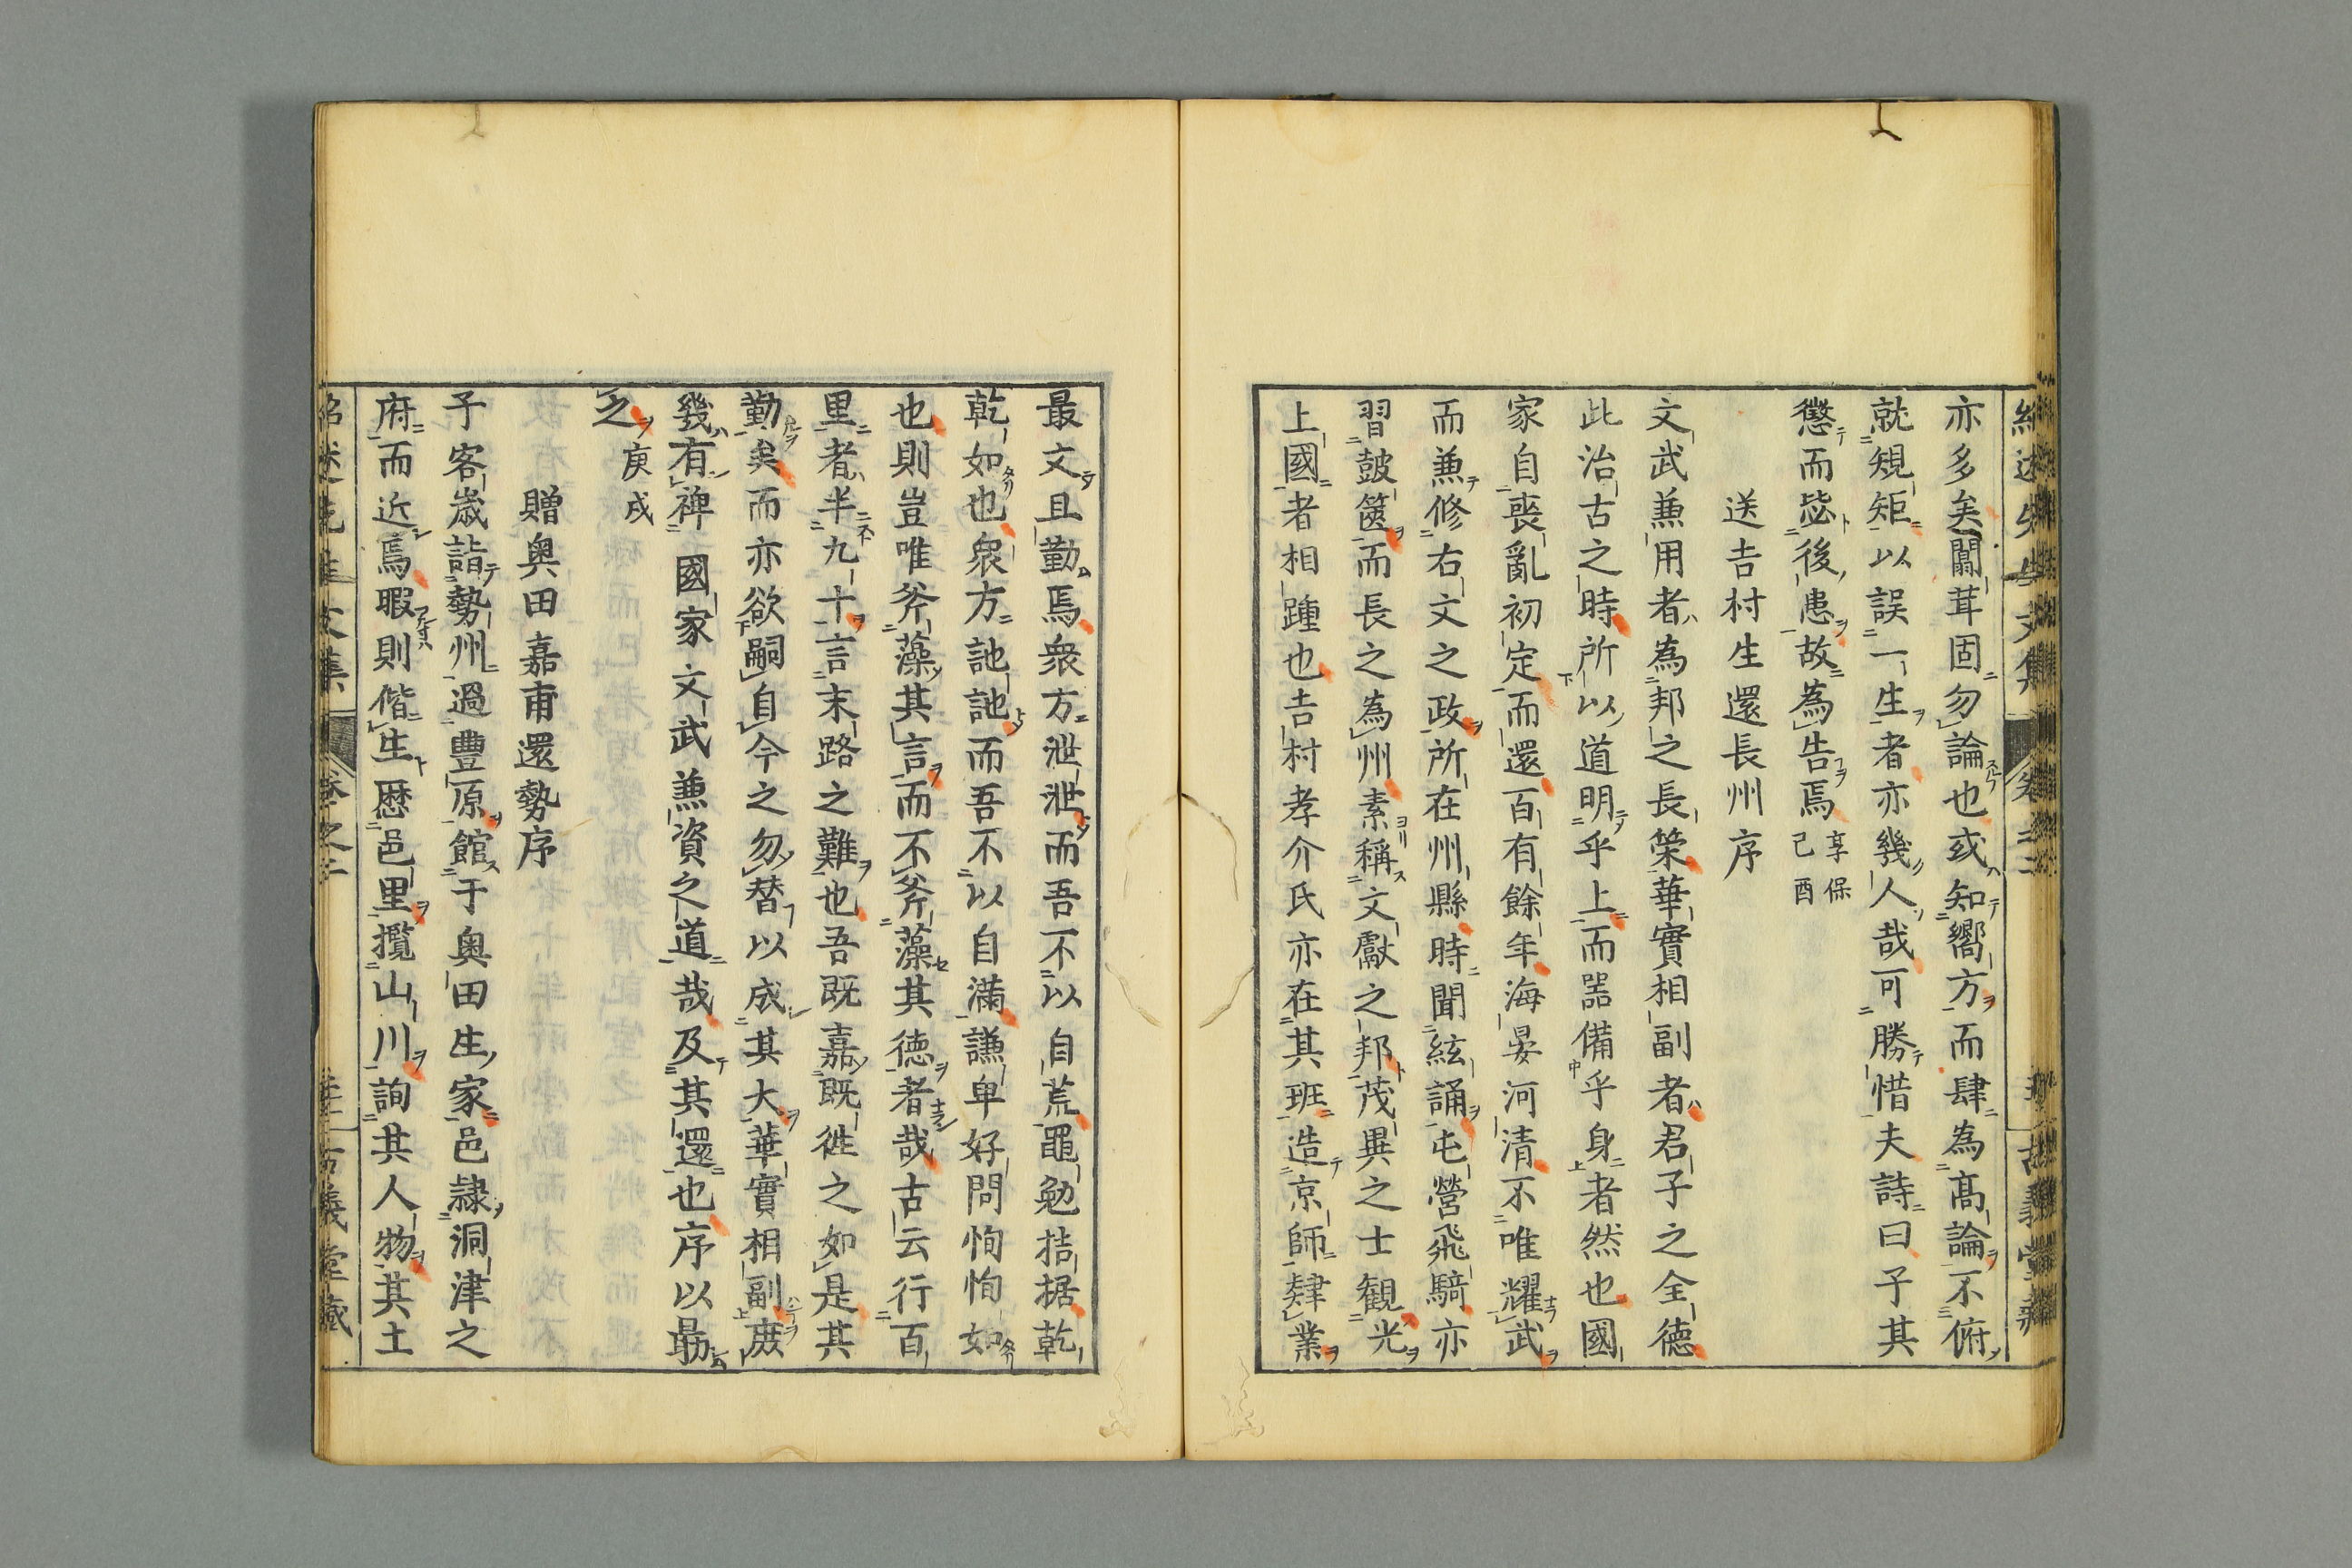 亦多矣闒茸固勿論也或知嚮方而肆為高論不俯
就規矩以誤一生者亦幾人哉可勝惜夫詩曰予其
懲而毖後患故為告焉享保己酉
送吉村生還長州序
文武兼用者為邦之長榮華實相副者君子之全德
此治古之時所以道明乎上而噐備乎身者然也國
家自喪亂初定而還百有餘年海晏河清不唯耀武
而兼修右文之政所在州縣時聞絃誦屯營飛騎亦
習皷篋而長之為州素稱文獻之邦茂異之士観光
上國者相踵也吉村孝介氏亦在其班造京師肄業
最文且勤焉衆方泄泄而吾不以自荒黽勉拮据乾
乾如也衆方訑訑而吾不以自滿謙卑好問恂恂如
也則豈唯斧藻其言而不斧藻其德者哉古云行百
里者半九十言末路之難也吾既嘉既徃之如是其
勤矣而亦欲嗣自今之勿替以成其大華實相副庶
幾有裨國家文武兼資之道哉及其還也序以勗
之庚戌
贈奥田嘉甫還勢序
予客歲詣勢州過豊原館于奥田生家邑隷洞津之
府而近焉暇則偕生歴邑里攬山川詢其人物其土